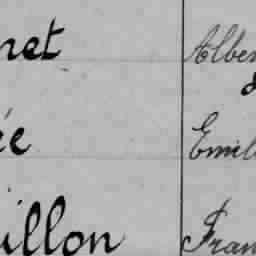 net Alber
ée Emil
illon Fran